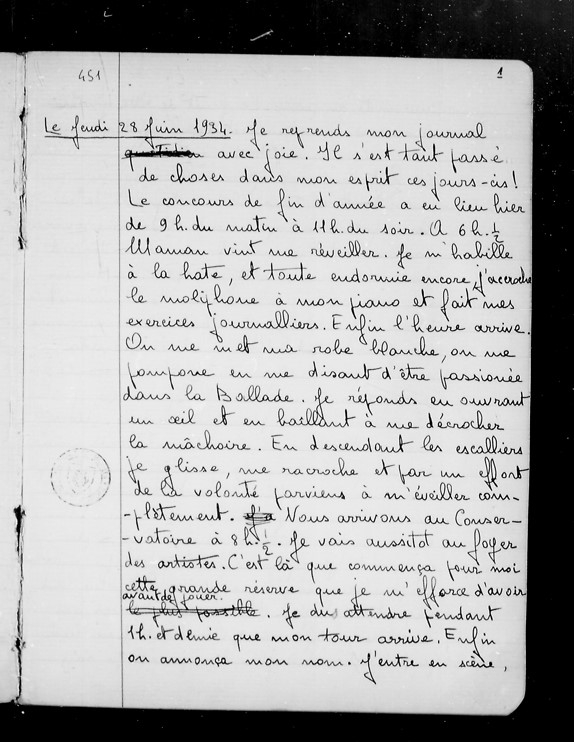 451
1
Le Jeudi 28 Juin 1934. Je reprends mon journal
quotidien avec joie. Il s'est tant passé
de choses dans mon esprit ces jours-cis!
Le concours de fin d'année a eu lieu hier
de 9h. du matin à 11h. du soir. A 6h. ½
Maman vint me réveiller. Je m'habille
à la hate, et toute endormie encore, j'accroche
le moliphone à mon piano et fait mes
exercices journalliers. Enfin l'heure arrive.
On me met ma robe blanche, on me
pompone en me disant d'être passionée
dans la Ballade. Je réponds en ouvrant
un œil et en baillant à me décrocher
la mâchoire. En descendant les escalliers
je glisse, me racroche et par un effort
de la volonté parviens à m'éveiller com-
-plètement. J'a Nous arrivons au Conser-
-vatoire à 8h. ½. Je vais aussitot au foyer
des artistes. C'est là que commença pour moi
cette grande réserve que je m'efforce d'avoir
avant de jouer.
le plus possible. Je du attendre pendant
1h. et demie que mon tour arrive. Enfin
on annonça mon nom. J'entre en scène,